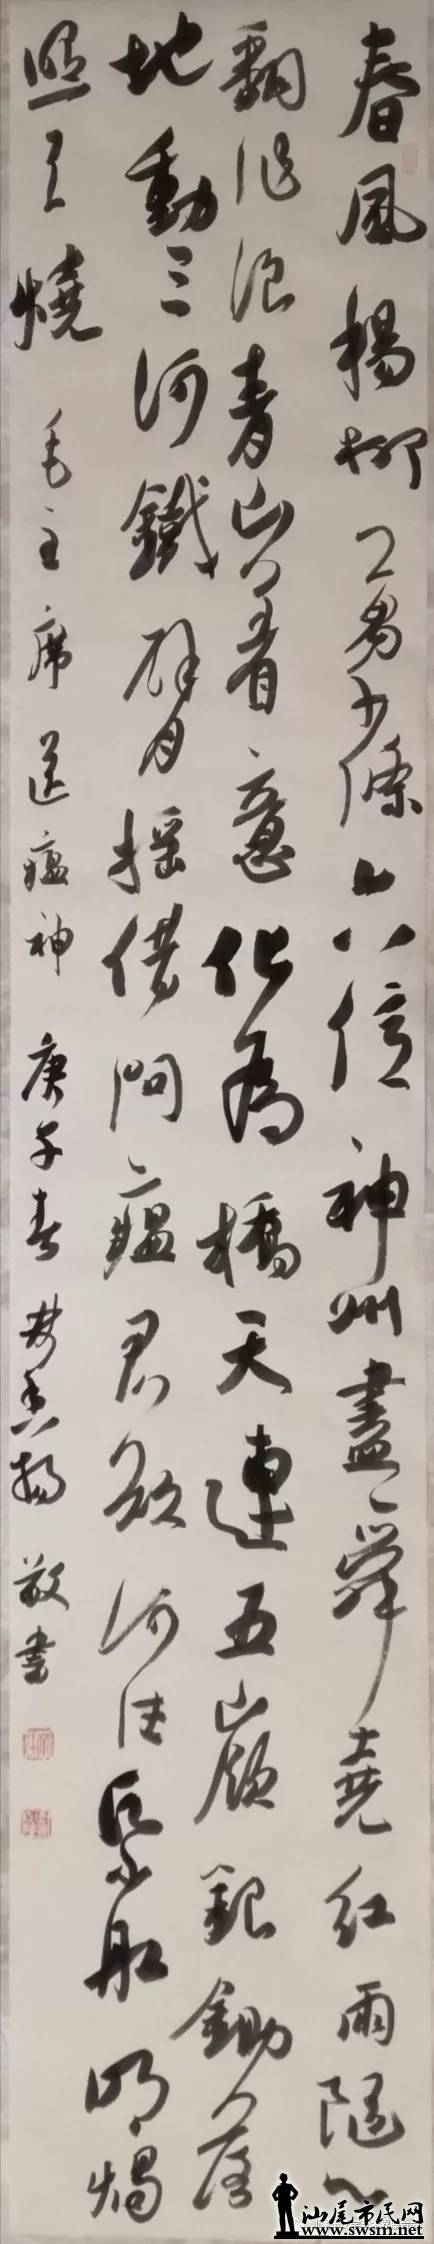 春風楊柳萬千條六億神州盡舜堯紅雨隨心
翻作浪青山着意化為橋天連五嶺銀鋤落
地動三河鐵臂搖借問瘟君欲何往紙船明燭
照天燒 毛主席送瘟神 庚子春 敬書
汕尾市民网
www.swsm.net